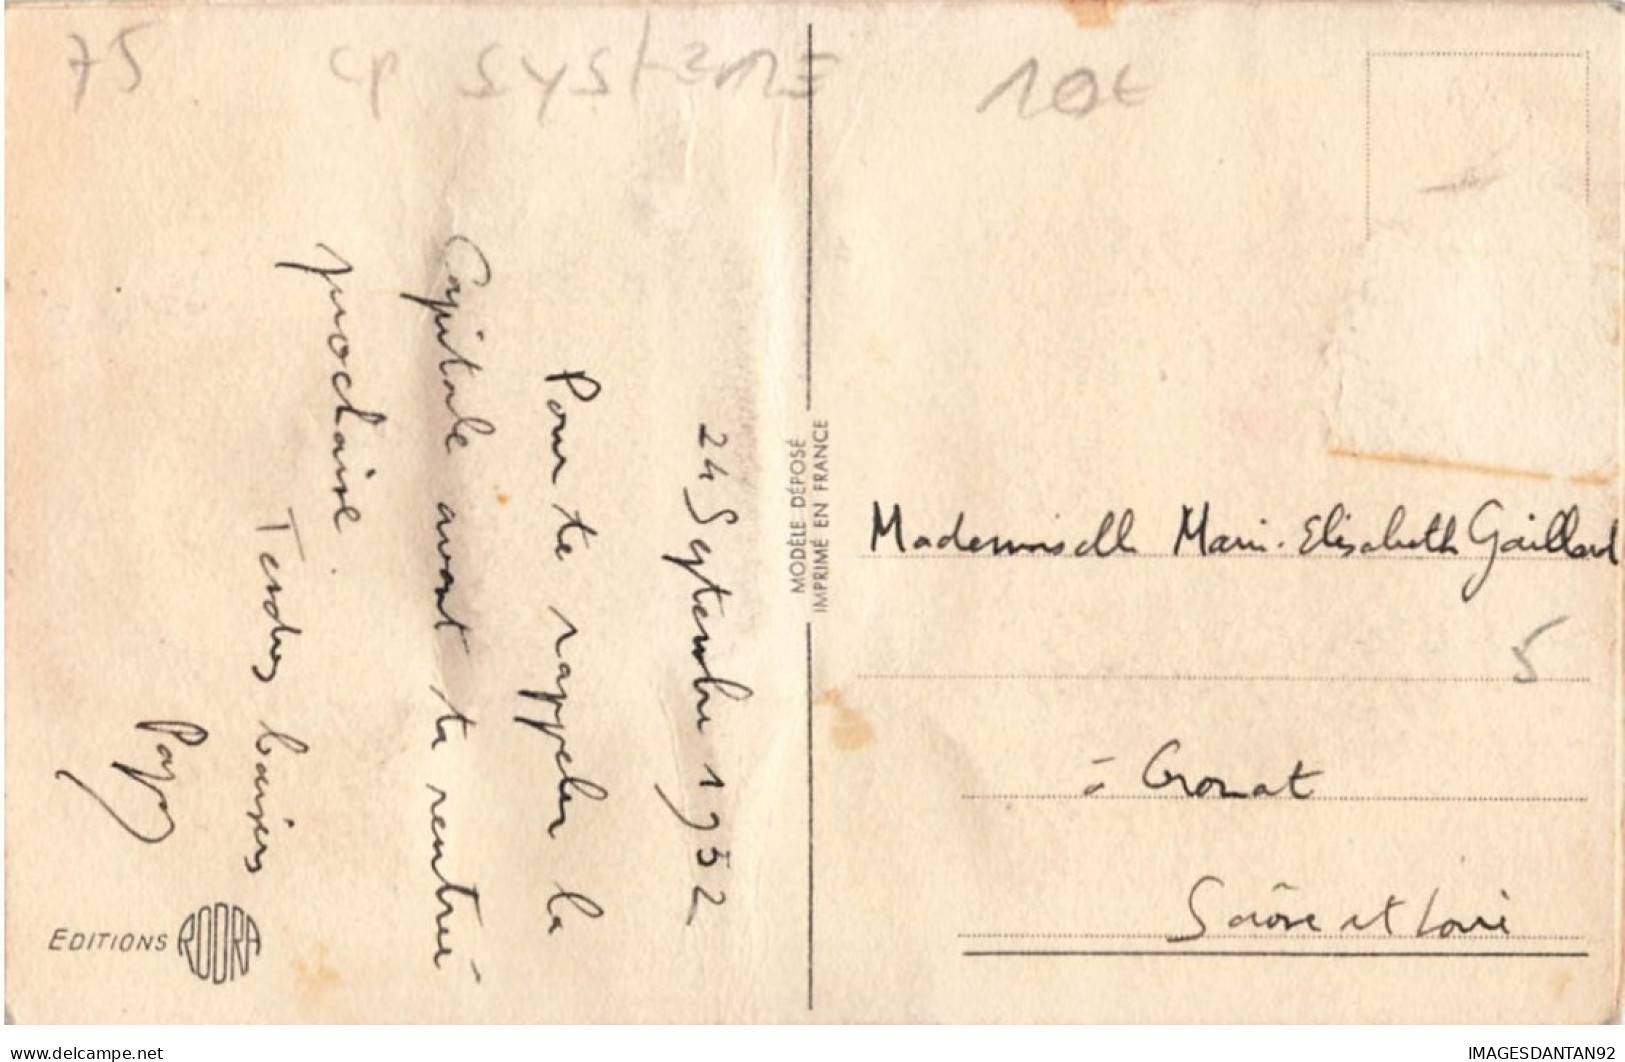 75 CP SYSTEME 10€
24 Septembre 1952
Pour te rappeler la
Capitale avant ta rentrée
prochaine
Tendres baisers
Papy
EDITIONS RODRA
MODÈLE DÉPOSÉ
IMPRIMÉ EN FRANCE
Mademoiselle Marie-Elisabeth Gaillard
5
à Cronat
Saône et Loire
www.delcampe.net
IMAGESDANTAN92